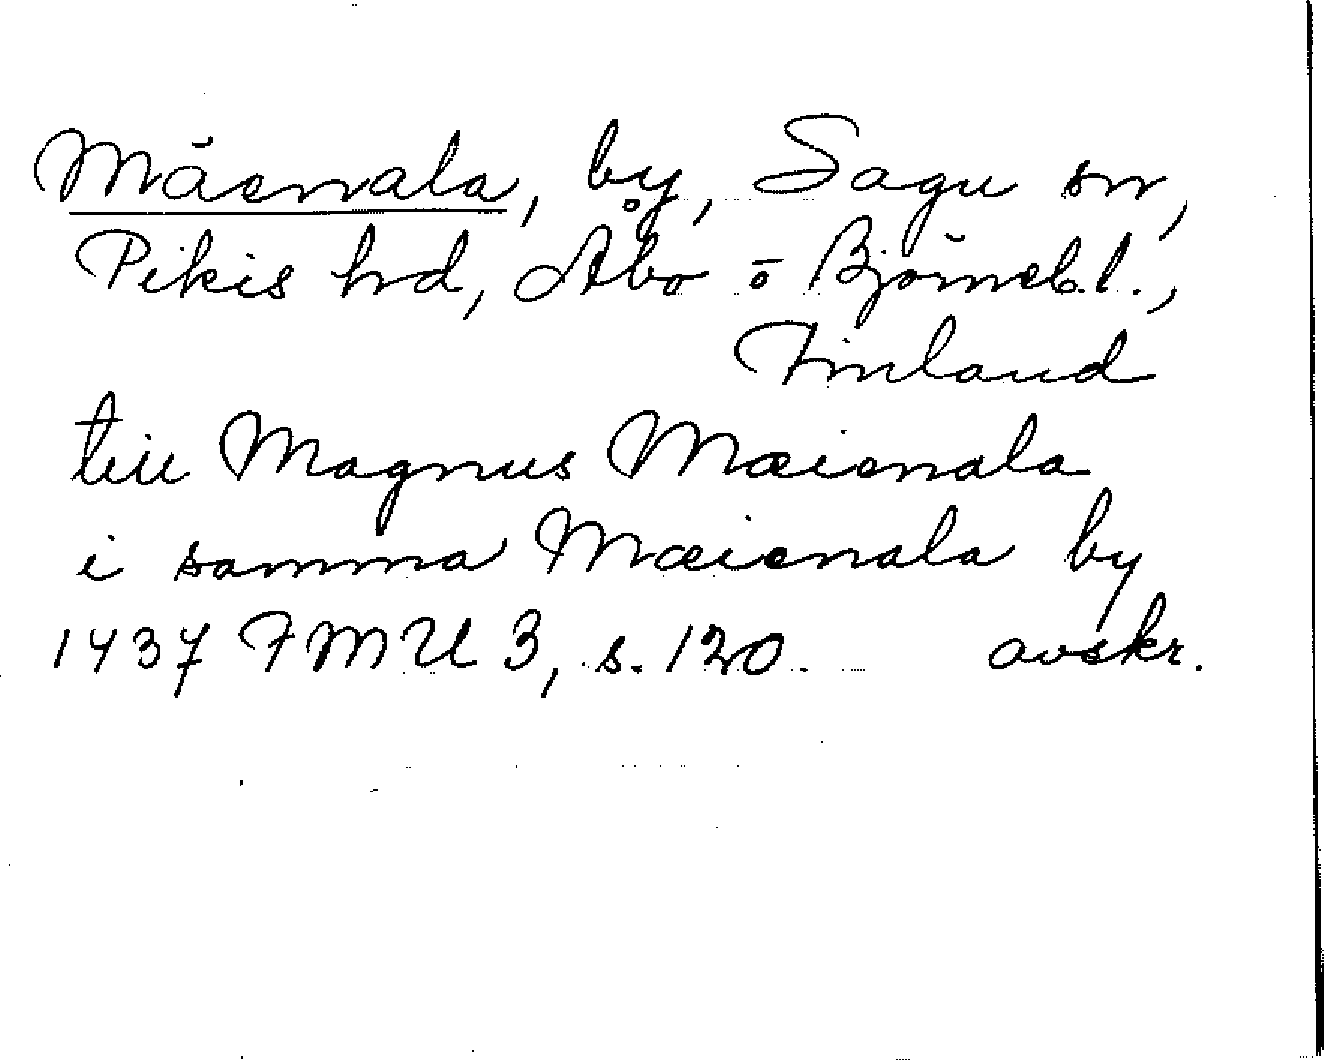 Mäenala, by, Sagu sn,
Pikis hd, Åbo o Björneb.l.,
Finland
till Magnus Mæienala
i samma Mæienala by
1437 FMU 3, s. 120. avskr.